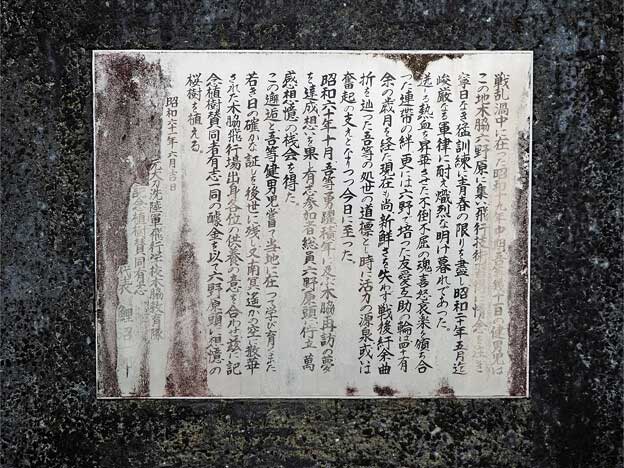 戦乱渦中に在った昭和十九年中期吾等 十日の健男児は
この地木脇六野原に集い飛行技術の 情念を注ぎ
寧日なき猛訓練に青春の限りを盡し昭和二十年五月迄
峻厳なる軍律に耐え熾烈な明け暮れであった。
逞しき熱血を昇華させた不倒不屈の魂喜怒哀楽を頒ち合
った連帯の絆更には六野で培った友愛互助の輪は四十有
余の歳月を経た現在も尚新鮮さを失わず戦後紆余曲
折を辿った吾等の処世の道標とし時に活力の源泉或は
奮起の支えとなすつつ今日に至った。
昭和六十年十月吾等勇躍積年に及ぶ木脇再訪の夢
を達成想いを果し有志参加者総員六野原頭に佇立万
感相憶の機会を得た。
この邂逅と吾等健男児嘗て当地に在って学び育ったまた
若き日の確かな証しを後世に残し又南冥遙かの空に散華
された木脇飛行場出身各位の供養の意を合わせ茲に記
念植樹賛同者有志一同の醵金を以て六野原頭に相憶の
桜樹を植える。
昭和六十一年六月吉日
大刀洗陸軍飛行学校木脇教育隊
記念植樹賛同有志
代表 鯉沼